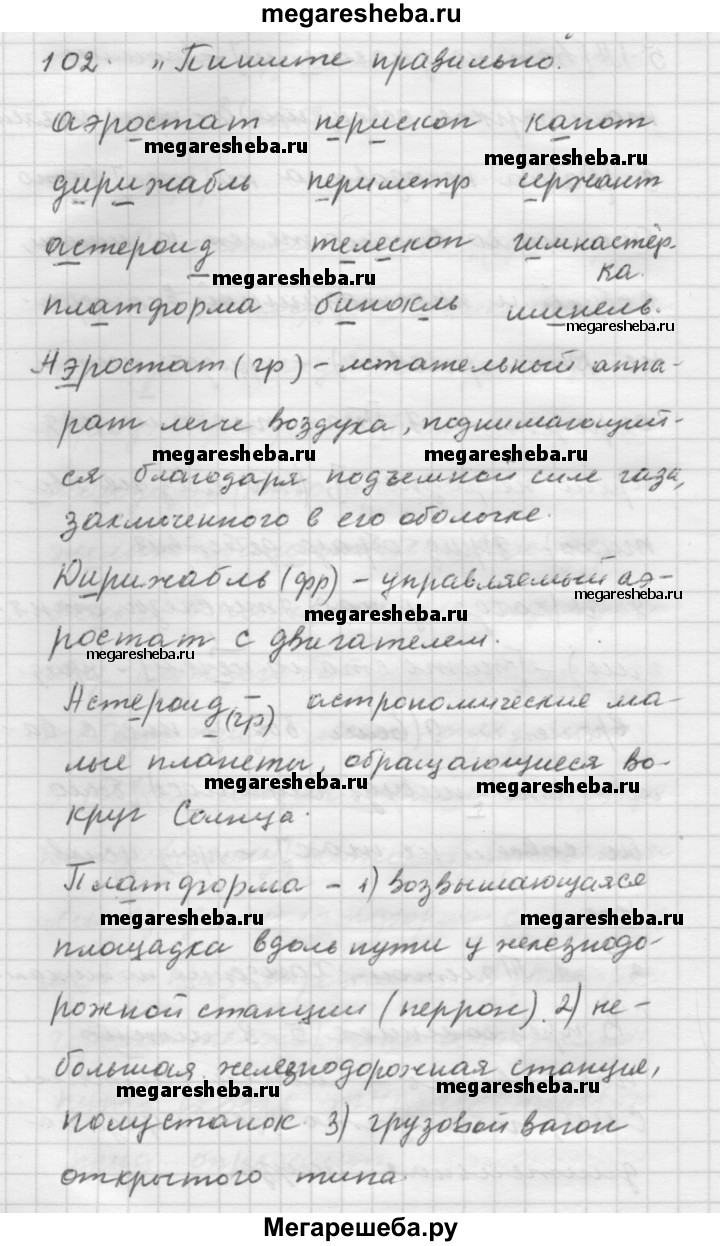 megaresheba.ru
102. „Пишите правильно.
аэростат перископ капот
megaresheba.ru megaresheba.ru
дирижабль периметр сержант
астероид телескоп гимнастёр-
megaresheba.ru ка.
платформа бинокль шинель.
megaresheba.ru
Аэростат (гр) – летательный аппа-
рат легче воздуха, поднимающий-
megaresheba.ru megaresheba.ru
ся благодаря подъемной силе газа,
заключенного в его оболочке.
Дирижабль (фр) – управляемый аэ-
megaresheba.ru
ростат с двигателем.
megaresheba.ru
Астероид (гр) – астрономические ма-
лые планеты, обращающиеся во-
megaresheba.ru megaresheba.ru
круг Солнца.
Платформа – 1) возвышающаяся
megaresheba.ru megaresheba.ru
площадка вдоль пути у железнодо-
рожной станции (перрон). 2) не-
большая железнодорожная станция,
megaresheba.ru megaresheba.ru
полустанок 3) грузовой вагон
открытого типа.
Мегарешеба.ру